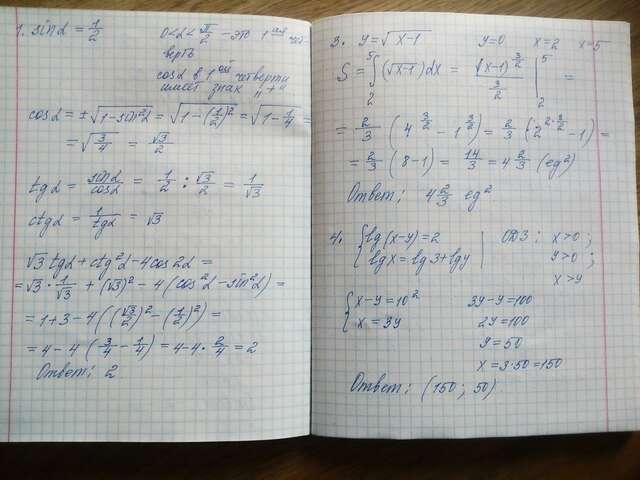 1. sin α = 1/2   0 < α < π/2 – это 1ая чет-
верть
cos α в 1ой четверти
имеет знак „+"
cos α = ±√(1-sin²α) = √(1-(1/2)²) = √(1-1/4) =
= √(3/4) = √3/2
tg α = sin α/cos α = 1/2 : √3/2 = 1/√3
ctg α = 1/tg α = √3
√3 tg α + ctg²α - 4 cos 2α =
= √3 · 1/√3 + (√3)² - 4 (cos²α - sin²α) =
= 1+3-4((√3/2)² - (1/2)²) =
= 4-4(3/4 - 1/4) = 4-4·2/4 = 2
Ответ: 2
3. y = √(x-1)   y=0   x=2   x=5
S = ∫₂⁵ (√(x-1)) dx = (x-1)^(3/2) / (3/2) |₂⁵ =
= 2/3 (4^(3/2) - 1^(3/2)) = 2/3 (2^(2·3/2) - 1) =
= 2/3 (8-1) = 14/3 = 4 2/3 (ед²)
Ответ: 4 2/3 ед²
4. { lg(x-y) = 2   ОДЗ: x>0;
{ lg x = lg 3 + lg y   y>0;
x>y
{ x-y = 10²   3y-y=100
{ x = 3y   2y=100
y=50
x=3·50=150
Ответ: (150; 50)